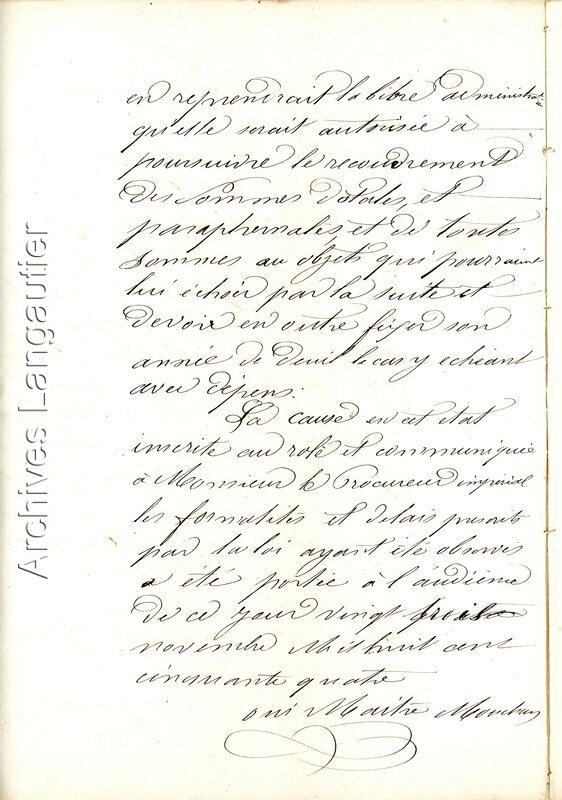 en reprendrait la libre administration
qu'elle serait autorisée à
poursuivre le recouvrement
des sommes dotales, et
paraphernales et de toutes
sommes au objets qui pourraient
lui échoir par la suite et
devoir en outre figer son
année de deuil le cas y échéant
avec dépens.
La cause en cet état
inscrite au role et communiquée
à Monsieur le Procureur impérial
les formalités et délais prescrits
par la loi ayant été observés
a été portée à l'audience
de ce jour vingt trois
novembre Mil huit cent
cinquante quatre
oui Maitre
Archives Langautier